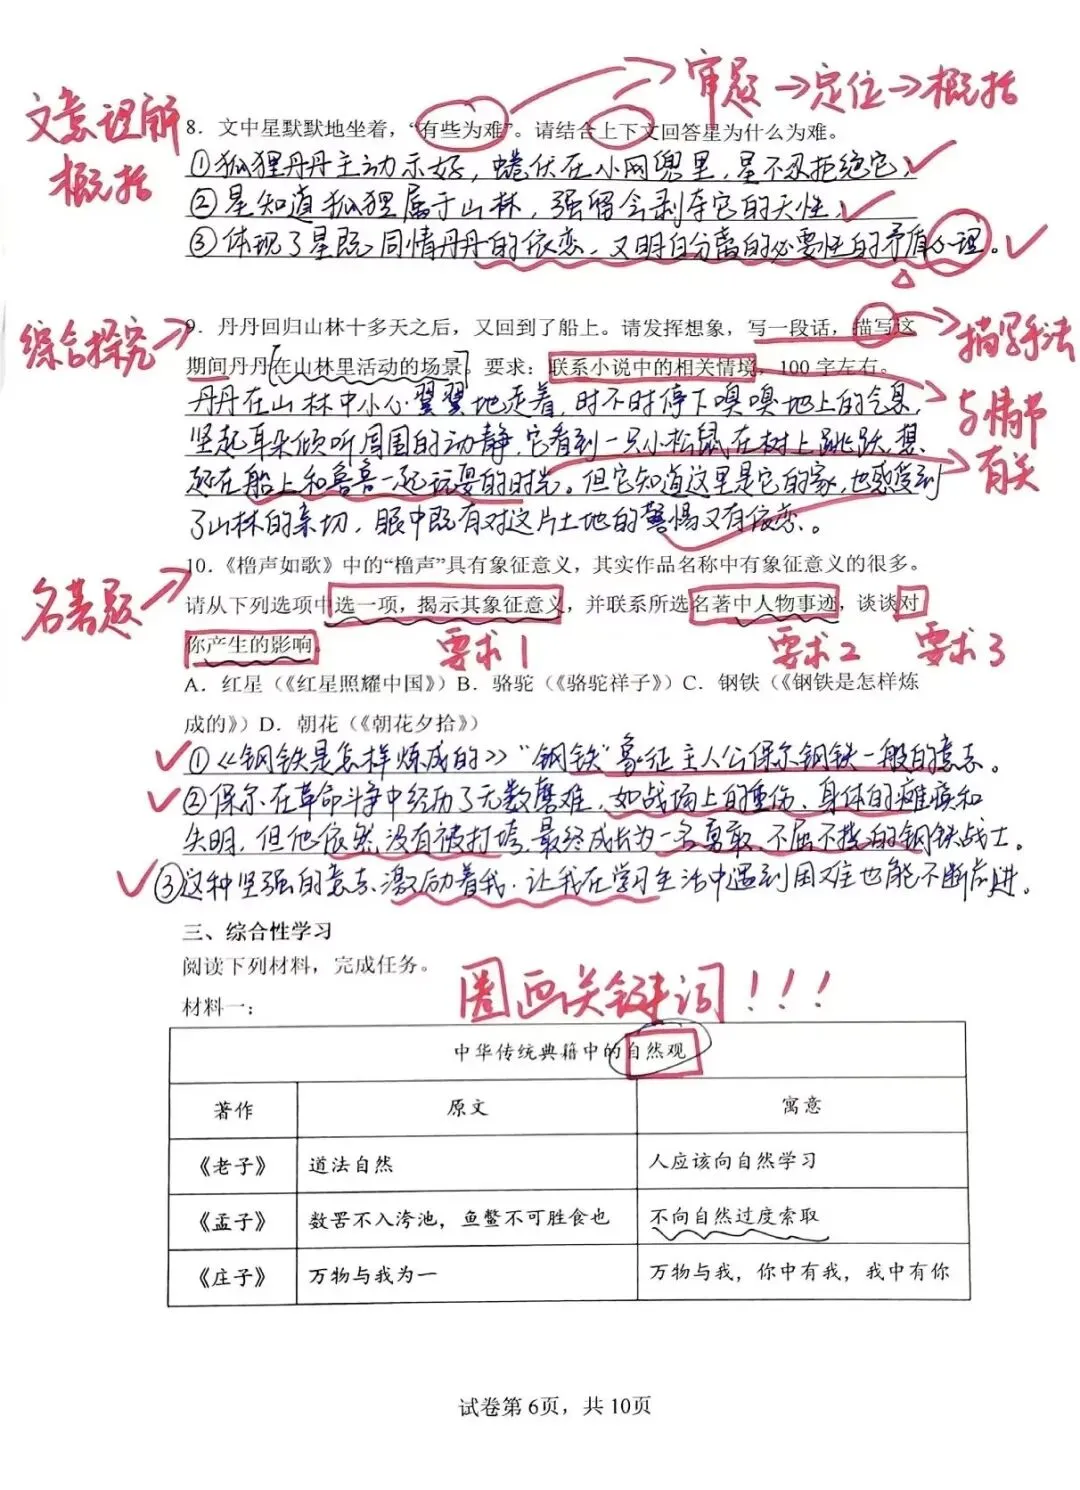 审题→定位→概括
文意理解
概括
8．文中星默默地坐着，“有些为难”。请结合上下文回答星为什么为难。
①狐狸丹丹主动示好，蜷伏在小网兜里，星不忍拒绝它；
②星知道狐狸属于山林，强留会剥夺它的天性；
③体现了星既同情丹丹的依恋、又明白分离的必要性的矛盾心理。
综合探究
9．丹丹回归山林十多天之后，又回到了船上。请发挥想象，写一段话，描写这
期间丹丹在山林里活动的场景。要求：联系小说中的相关情境，100字左右。
描写手法
与情节
有关
丹丹在山林中小心翼翼地走着，时不时停下嗅嗅地上的气息，
竖起耳朵倾听周围的动静，它看到一只小松鼠在树上跳跃，想
起在船上和鲁鲁一起玩耍的时光。但它知道这里是它的家，也感受到
了山林的亲切，眼中既有对这片土地的警惕又有依恋。
名著题
10．《橹声如歌》中的“橹声”具有象征意义，其实作品名称中有象征意义的很多。
请从下列选项中选一项，揭示其象征意义，并联系所选名著中人物事迹，谈谈对
你产生的影响。
要求1 要求2 要求3
A．红星（《红星照耀中国》）B．骆驼（《骆驼祥子》）C．钢铁（《钢铁是怎样炼
成的》）D．朝花（《朝花夕拾》）
①《钢铁是怎样炼成的》“钢铁”象征主人公保尔钢铁一般的意志。
②保尔在革命斗争中经历了无数磨难，如战场上的重伤、身体的瘫痪和
失明，但他依然没有被打垮，最终成长为一名勇敢、不屈不挠的钢铁战士。
③这种坚强的意志激励着我，让我在学习生活中遇到困难也能不断前进。
三、综合性学习
阅读下列材料，完成任务。
圈画关键词！！！
材料一：
中华传统典籍中的自然观
著作 原文 寓意
《老子》 道法自然 人应该向自然学习
《孟子》 数罟不入洿池，鱼鳖不可胜食也 不向自然过度索取
《庄子》 万物与我为一 万物与我，你中有我，我中有你
试卷第6页，共10页